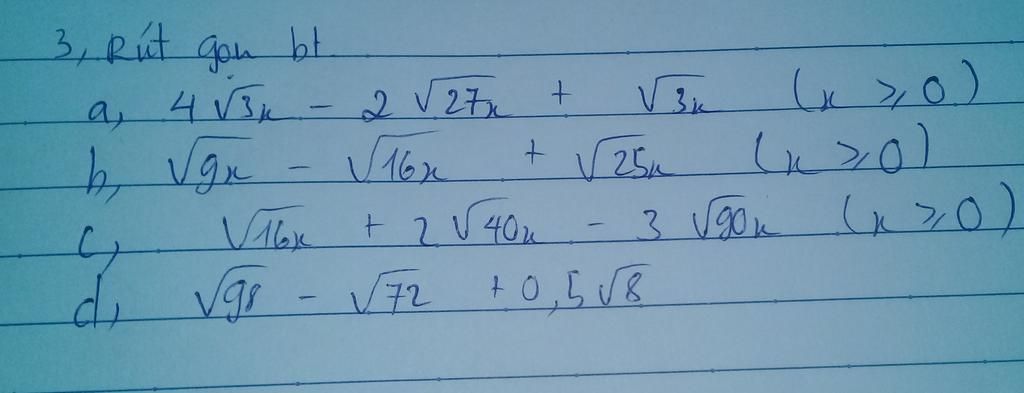 3, Rút gọn bt
a, 4√3x - 2√27x + √3x (x ⩾ 0)
b, √9x - √16x + √25x (x ⩾ 0)
c, √16x + 2√40x - 3√90x (x ⩾ 0)
d, √98 - √72 + 0,5√8